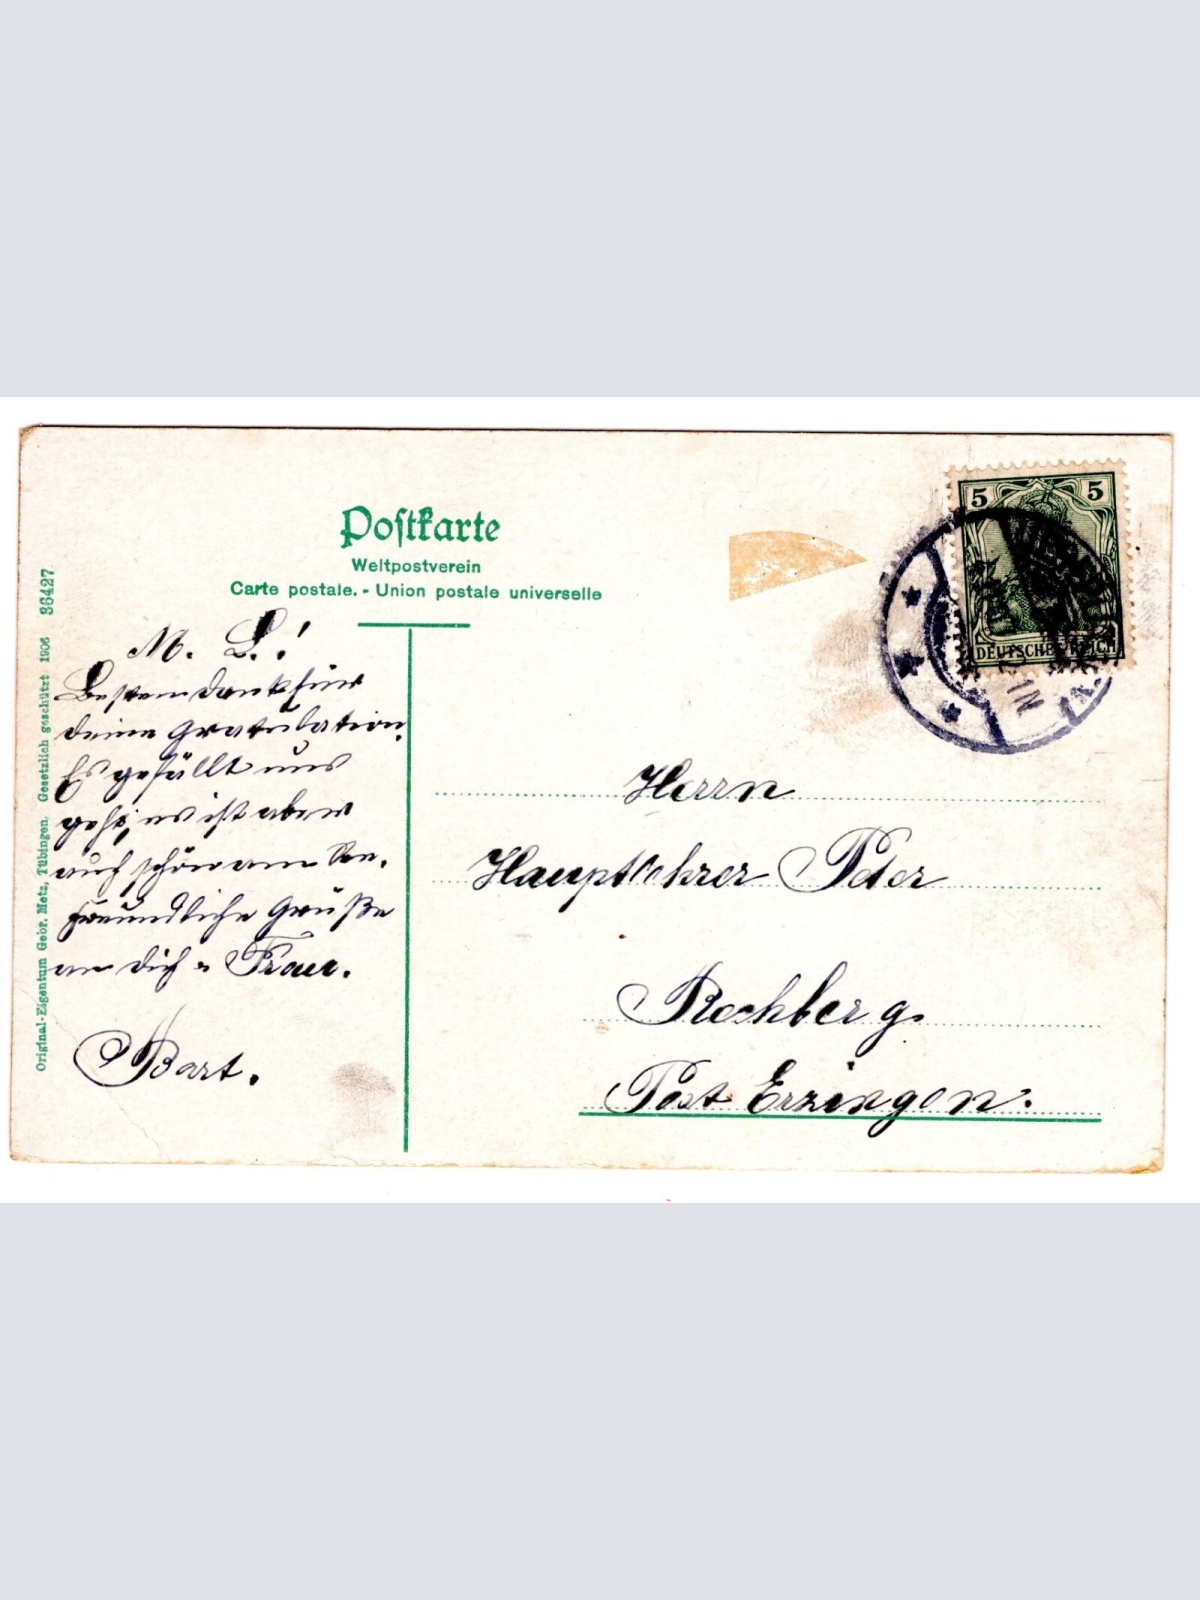 Postkarte
Weltpostverein
Carte postale. - Union postale universelle
36427
Original-Eigentum Gebr. Metz, Tübingen. Gesetzlich geschützt 1906
M. L.!
Besten Dank für
deine Gratulation.
Es gefällt uns
es ist aber
auch schön am
freundliche Grüße
an dich u. Frau.
Bart.
5 5
DEUTSCHES REICH
Herrn
Hauptlehrer Peter
Rechberg.
Post Erzingen.